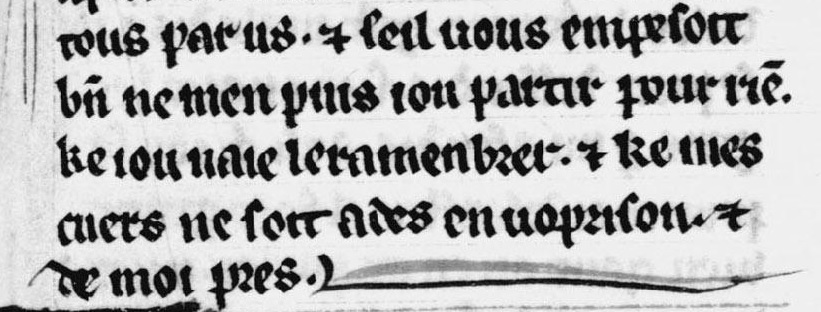 tous par us. ⁊ seil uous empesoit
bn̄ ne men puis iou partir pour riē.
ke iou naie leramenbrer. ⁊ ke mes
cuers ne soit ades en uoprison. ⁊
de moi pres.